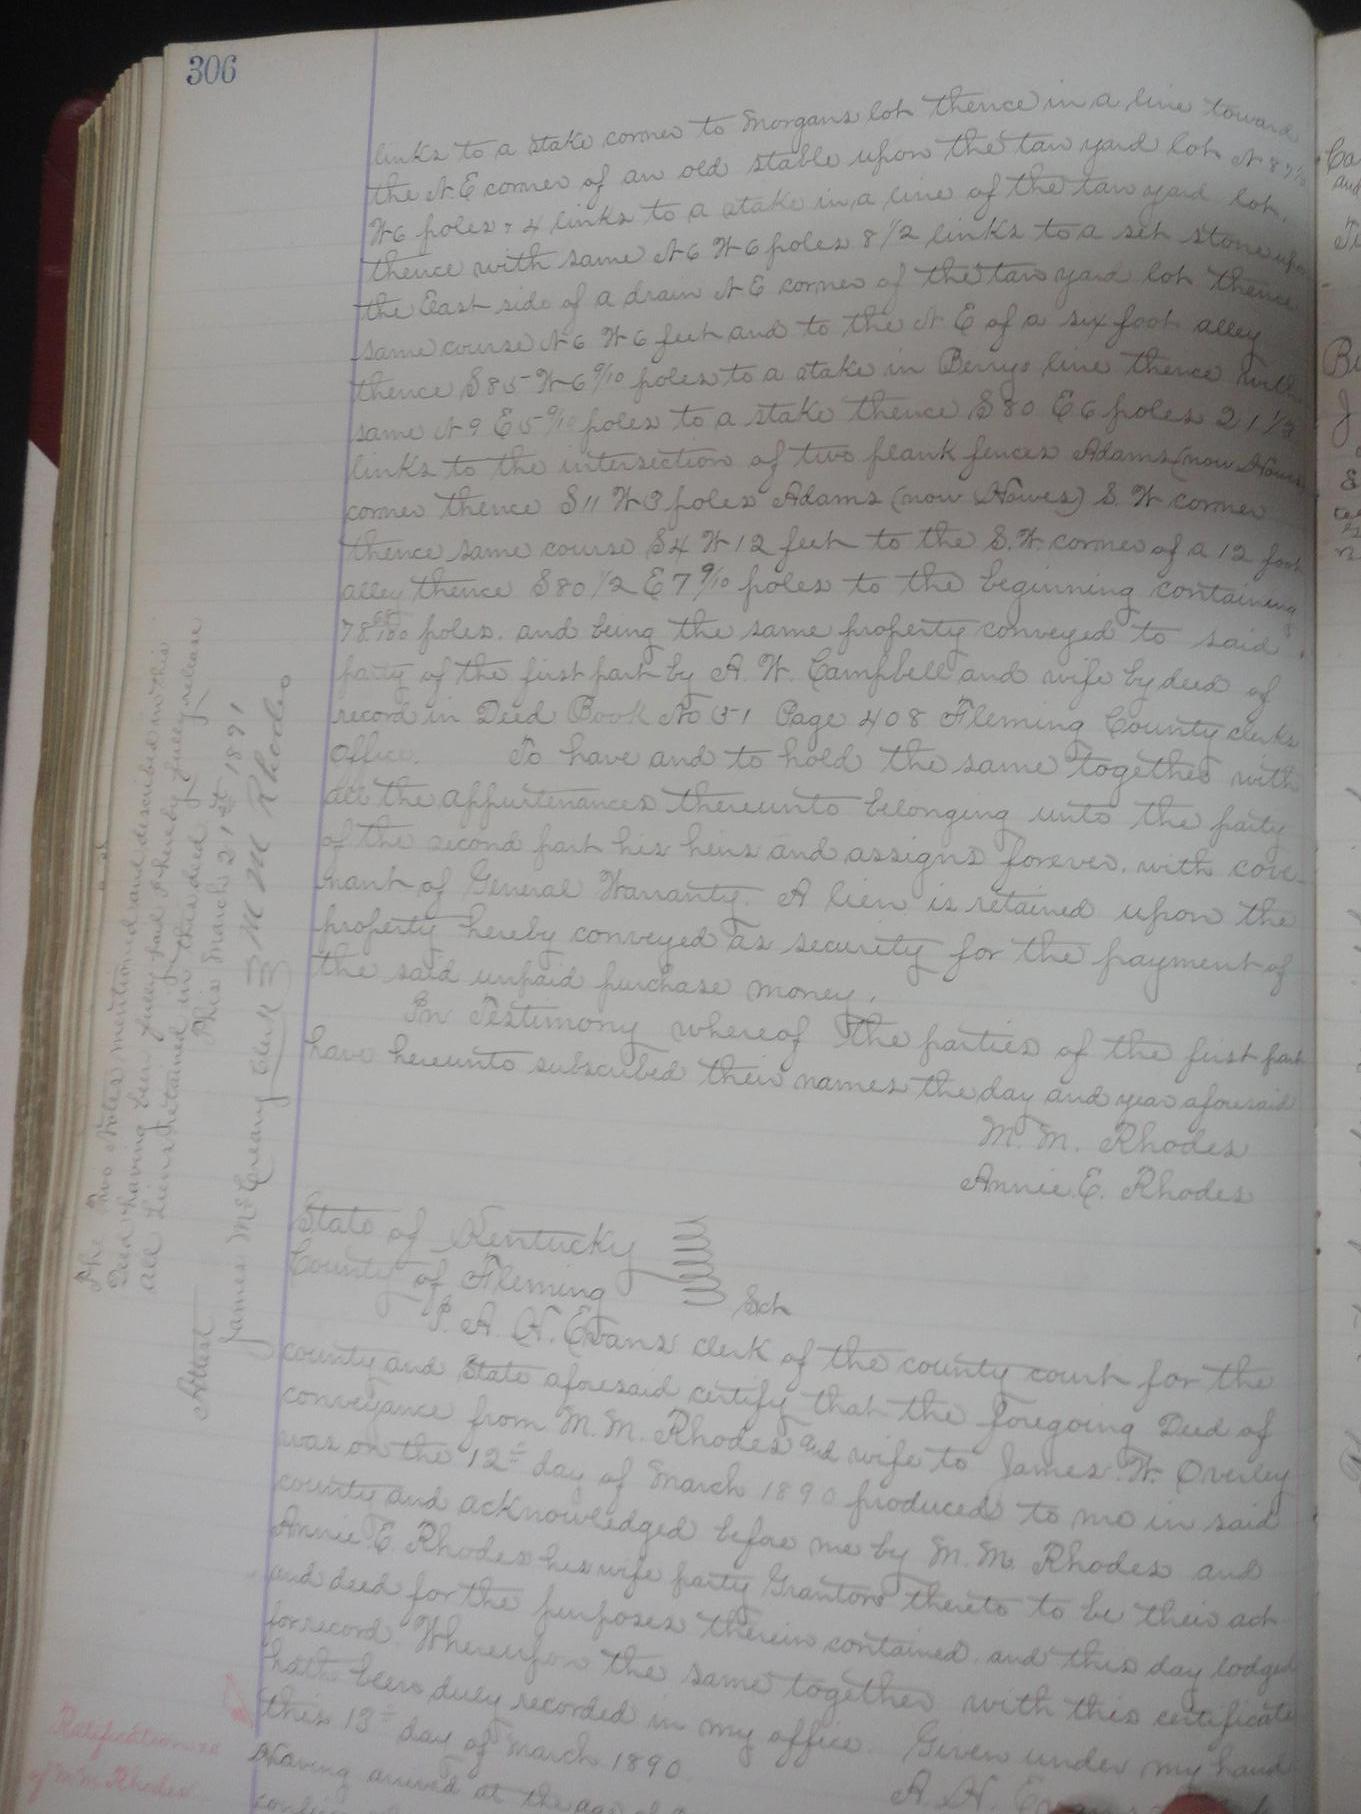 306
links to a stake corner to Morgans lot thence in a line toward
the N. E corner of an old stable upon the tan yard lot N 87½
W 6 poles & 4 links to a stake in a line of the tan yard lot.
thence with same N 6 W 6 poles 8 1/2 links to a set stone upon
the East side of a drain N E corner of the tan yard lot thence
same course N 6 W 6 feet and to the N. E of a six foot alley
thence S 85 W 6 9/10 poles to a stake in Berrys line thence with
same N 9 E 5 9/10 poles to a stake thence S 80 E 6 poles 21 1/3
links to the intersection of two plank fences Adams (now Hawes
corner thence S 11 W 3 poles Adams (now Hawes) S. W corner
thence same course S 4 W 12 feet to the S. W. corner of a 12 foot
alley thence S 80 1/2 E 7 9/10 poles to the beginning containing
78 poles. and being the same property conveyed to said
party of the first part by A. W. Campbell and wife by deed of
record in Deed Book No 51 Page 408 Fleming County clerks
Office. To have and to hold the same together with
all the appurtenances thereunto belonging unto the party
of the second part his heirs and assigns forever, with cove-
nant of General Warranty. A lien is retained upon the
property hereby conveyed as security for the payment of
the said unpaid purchase money.
In Testimony whereof the parties of the first part
have hereunto subscribed their names the day and year aforesaid
M. M. Rhodes
Annie. E. Rhodes
State of Kentucky
County of Fleming Sct
I. A. N. Evans clerk of the county court for the
county and State aforesaid certify that the foregoing Deed of
conveyance from M. M. Rhodes and wife to James. W. Overley
was on the 12th day of March 1890 produced to me in said
county and acknowledged before me by M. M. Rhodes and
Annie E. Rhodes his wife party Grantors thereto to be their act
and deed for the purposes therein contained, and this day lodged
for record. Whereupon the same together with this certificate
hath been duly recorded in my office. Given under my hand
this 13th day of March 1890
A. N. Evans
Having arrived at the age of
The Two Notes mentioned and described in this
Deed having been fully paid I hereby fully release
all Liens retained in this deed
This March 21st 1891
M M Rhodes
Attest
James McCreary Clerk
Ratification
of M M Rhodes